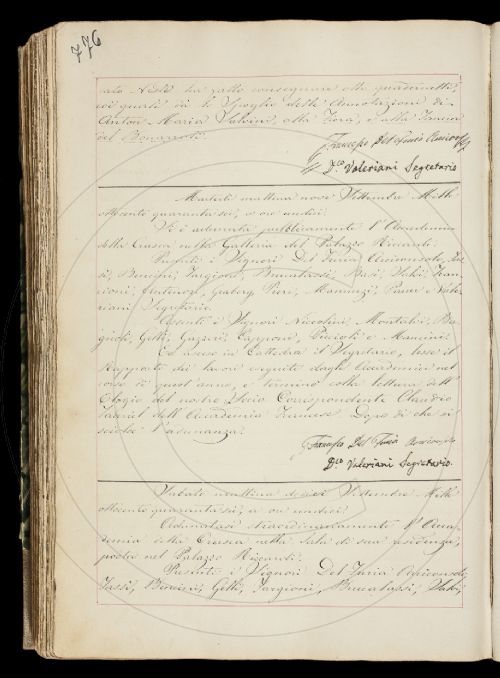 776
ha fatto consegnare otto quadernetti,
coi quali dà lo Spoglio delle Annotazioni di
Anton Maria Salvini, alla Fiera, e alla Tancia
del Buonarroti.
Francesco Del Furia Arciconsolo
D.co Valeriani Segretario
Martedì mattina nove Settembre Mille
ottocento quarantasei, a ore undici.
Si è adunata pubblicamente l'Accademia
della Crusca nella Galleria del Palazzo Riccardi.
Presenti i Signori Del Furia Arciconsolo,
Bencini, Targioni, Brucalassi, Basi,
Pieri, Mannuzzi,
Segretario.
Assenti i Signori Niccolini, Montalvi,
Gelli, Gazzeri, Capponi, Puccioli e Mancini.
Ed asceso in Cattedra il Segretario, lesse il
Rapporto dei lavori eseguiti dagli Accademici nel
corso di quest'anno, e terminò colla lettura dell'
Elogio del nostro Socio Corrispondente Claudio
Fauriel dell'Accademia Francese. Dopo di che si
sciolse l'adunanza.
Francesco Del Furia Arciconsolo
D.co Valeriani Segretario.
Sabato mattina dodici Settembre Mille
ottocento quarantasei, a ore undici.
Adunatasi straordinariamente l'Acca-
demia della Crusca nella Sala di sua residenza,
posta nel Palazzo Riccardi.
Presenti i Signori Del Furia Arciconsolo,
Bencini, Gelli, Targioni, Brucalassi,